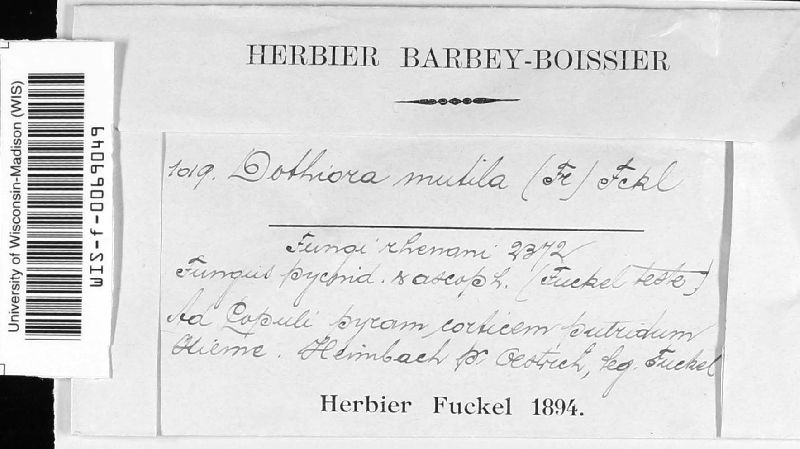 HERBIER BARBEY-BOISSIER
1019. Dothiora mutila (Fr) Fckl
Fungi rhenani 2372
Fungus pycnid. & ascoph. (Fuckel teste)
Ad Populi pyram corticem putridum
Hieme. Heimbach pr. Oestrich, leg. Fuckel
Herbier Fuckel 1894.
University of Wisconsin-Madison (WIS)
WIS-f-0069049